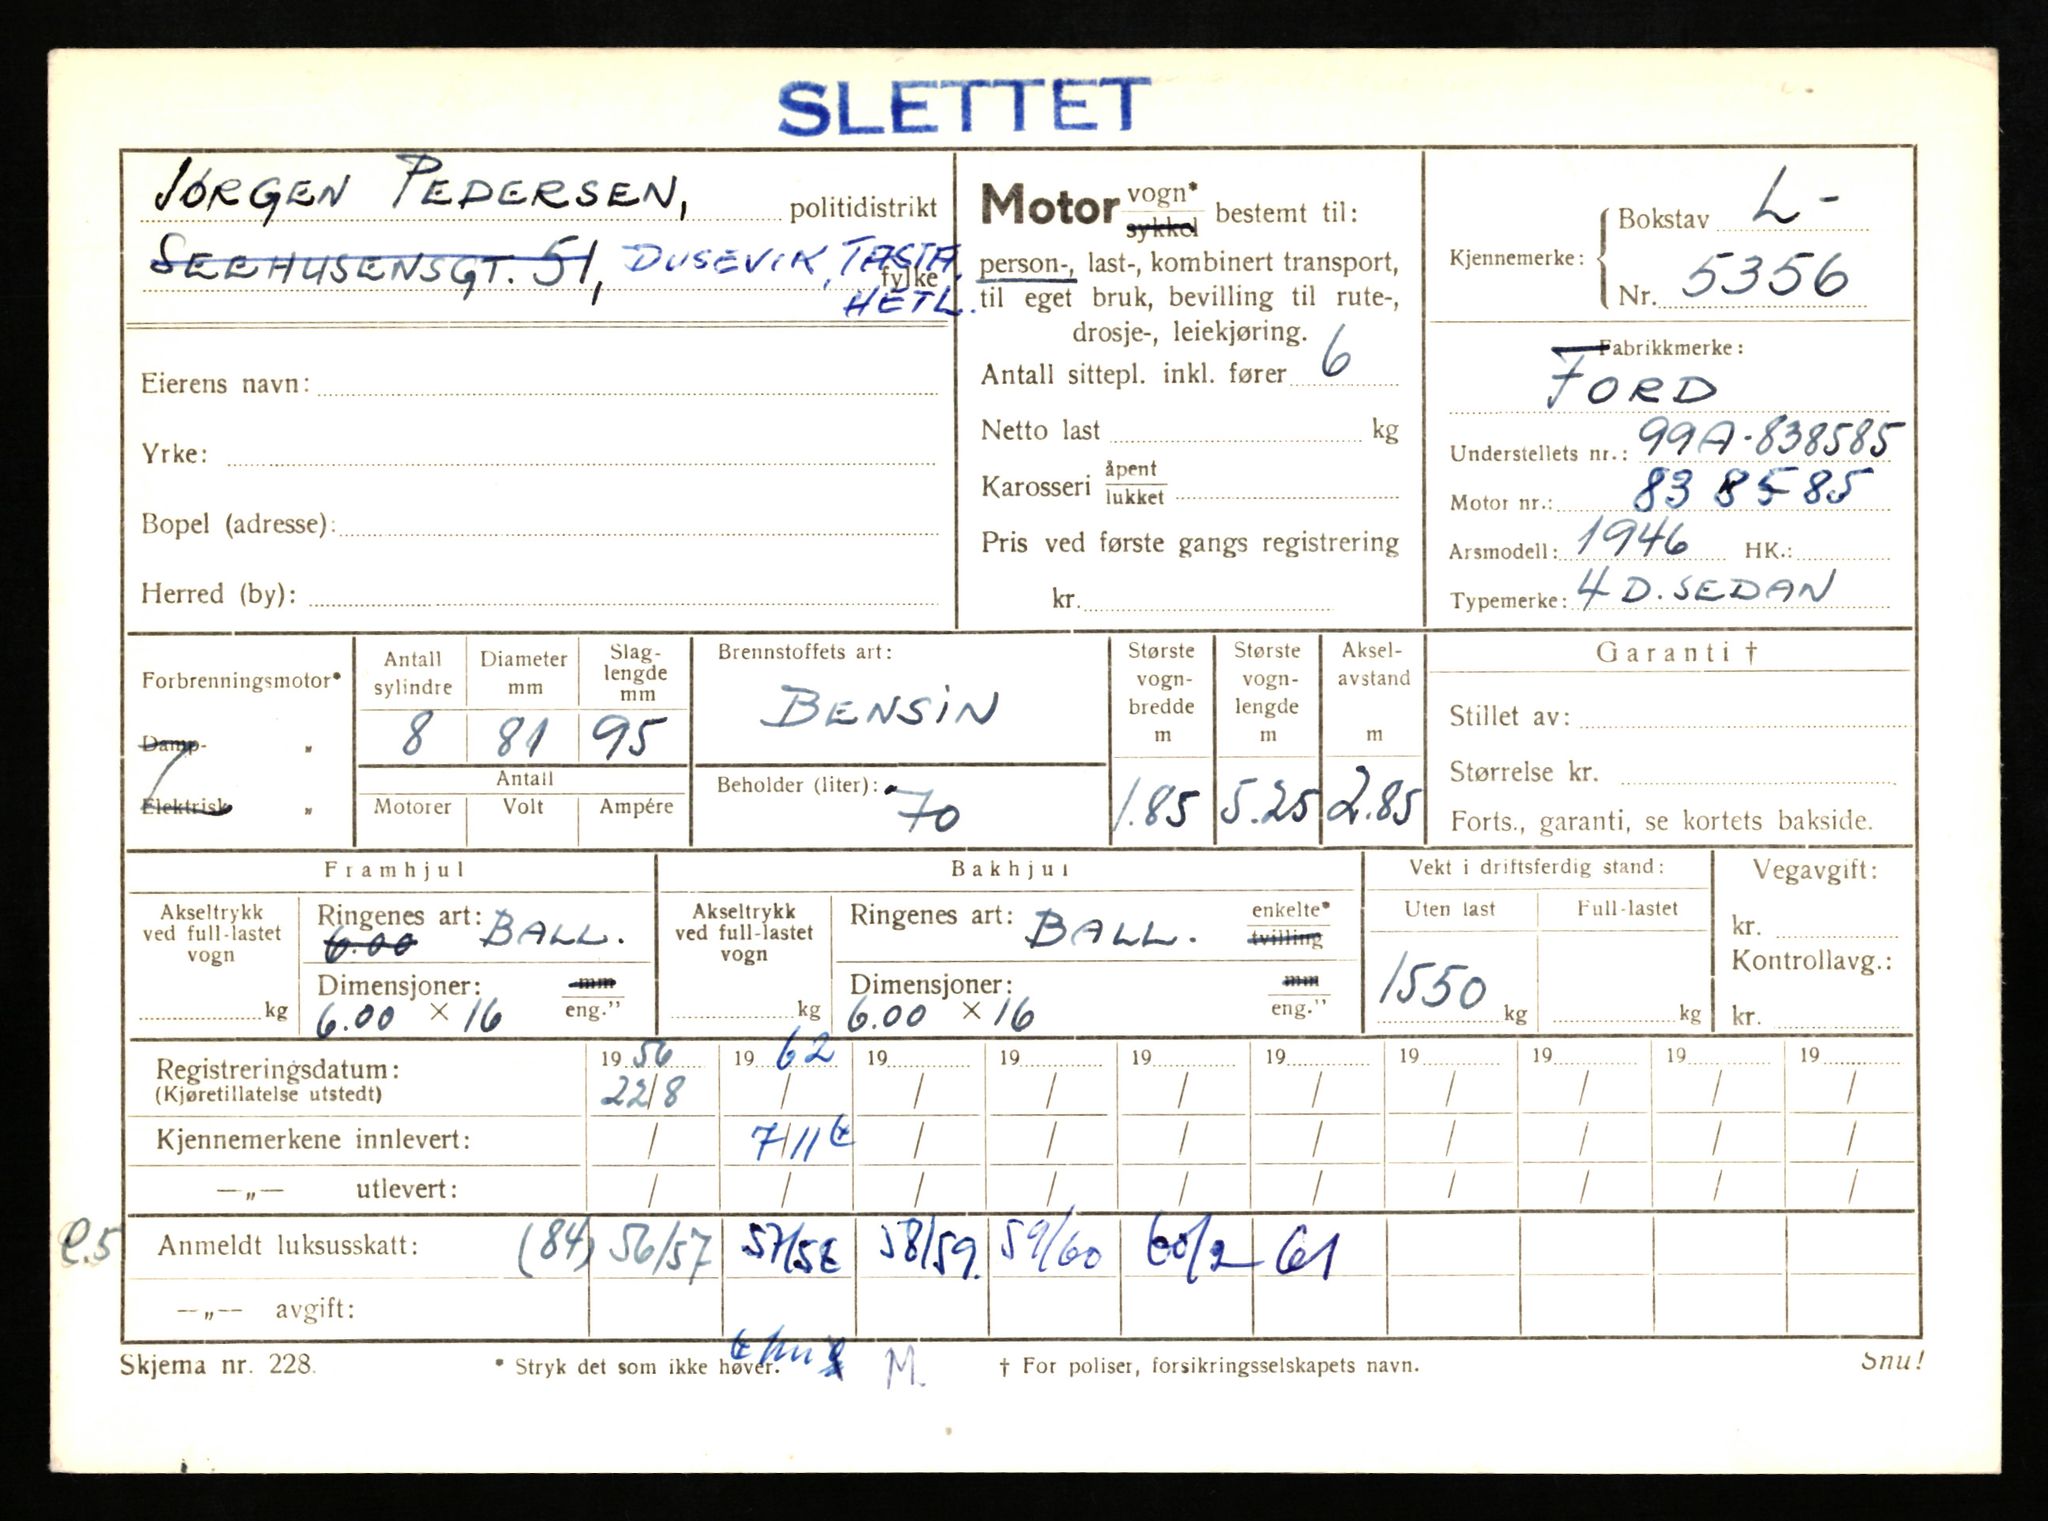 SLETTET
JØRGEN PEDERSEN, politidistrikt
SEEHUSENSGT. 51, DUSEVIK, TASTA,
fylke
HETL.
Eierens navn:
Yrke:
Bopel (adresse):
Herred (by):
Motor vogn* sykkel bestemt til:
person-, last-, kombinert transport,
til eget bruk, bevilling til rute-,
drosje-, leiekjøring.
Antall sittepl. inkl. fører 6
Netto last kg
Karosseri åpent lukket
Pris ved første gangs registrering
kr.
Kjennemerke: Bokstav L-
Nr. 5356
Fabrikkmerke:
FORD
Understellets nr.: 99A-838585
Motor nr.: 838585
Arsmodell: 1946 HK.:
Typemerke: 4 D. SEDAN
Forbrenningsmotor*
Damp- „
Elektrisk „
Antall sylindre
Diameter mm
Slag-lengde mm
8 81 95
Antall
Motorer Volt Ampére
Brennstoffets art:
BENSIN
Beholder (liter):
70
Største vogn-bredde m
1.85
Største vogn-lengde m
5.25
Aksel-avstand m
2.85
Garanti †
Stillet av:
Størrelse kr.
Forts., garanti, se kortets bakside.
Framhjul
Akseltrykk ved full-lastet vogn
kg
Ringenes art: BALL.
6.00
Dimensjoner: mm
6.00 × 16 eng.”
Bakhjul
Akseltrykk ved full-lastet vogn
kg
Ringenes art: BALL. enkelte* tvilling
Dimensjoner: mm
6.00 × 16 eng.”
Vekt i driftsferdig stand:
Uten last Full-lastet
1550 kg kg
Vegavgift:
kr.
Kontrollavg.:
kr.
Registreringsdatum: 19 56 19 62 19 19 19 19 19 19 19 19
(Kjøretillatelse utstedt) 22/8 / / / / / / / / /
Kjennemerkene innlevert: / 7/11 / / / / / / / /
—„— utlevert: / / / / / / / / / /
Anmeldt luksusskatt: (84) 56/57 57/58 58/59. 59/60 60/2 61
—„— avgift:
Skjema nr. 228. * Stryk det som ikke høver. M. † For poliser, forsikringsselskapets navn. Snu!